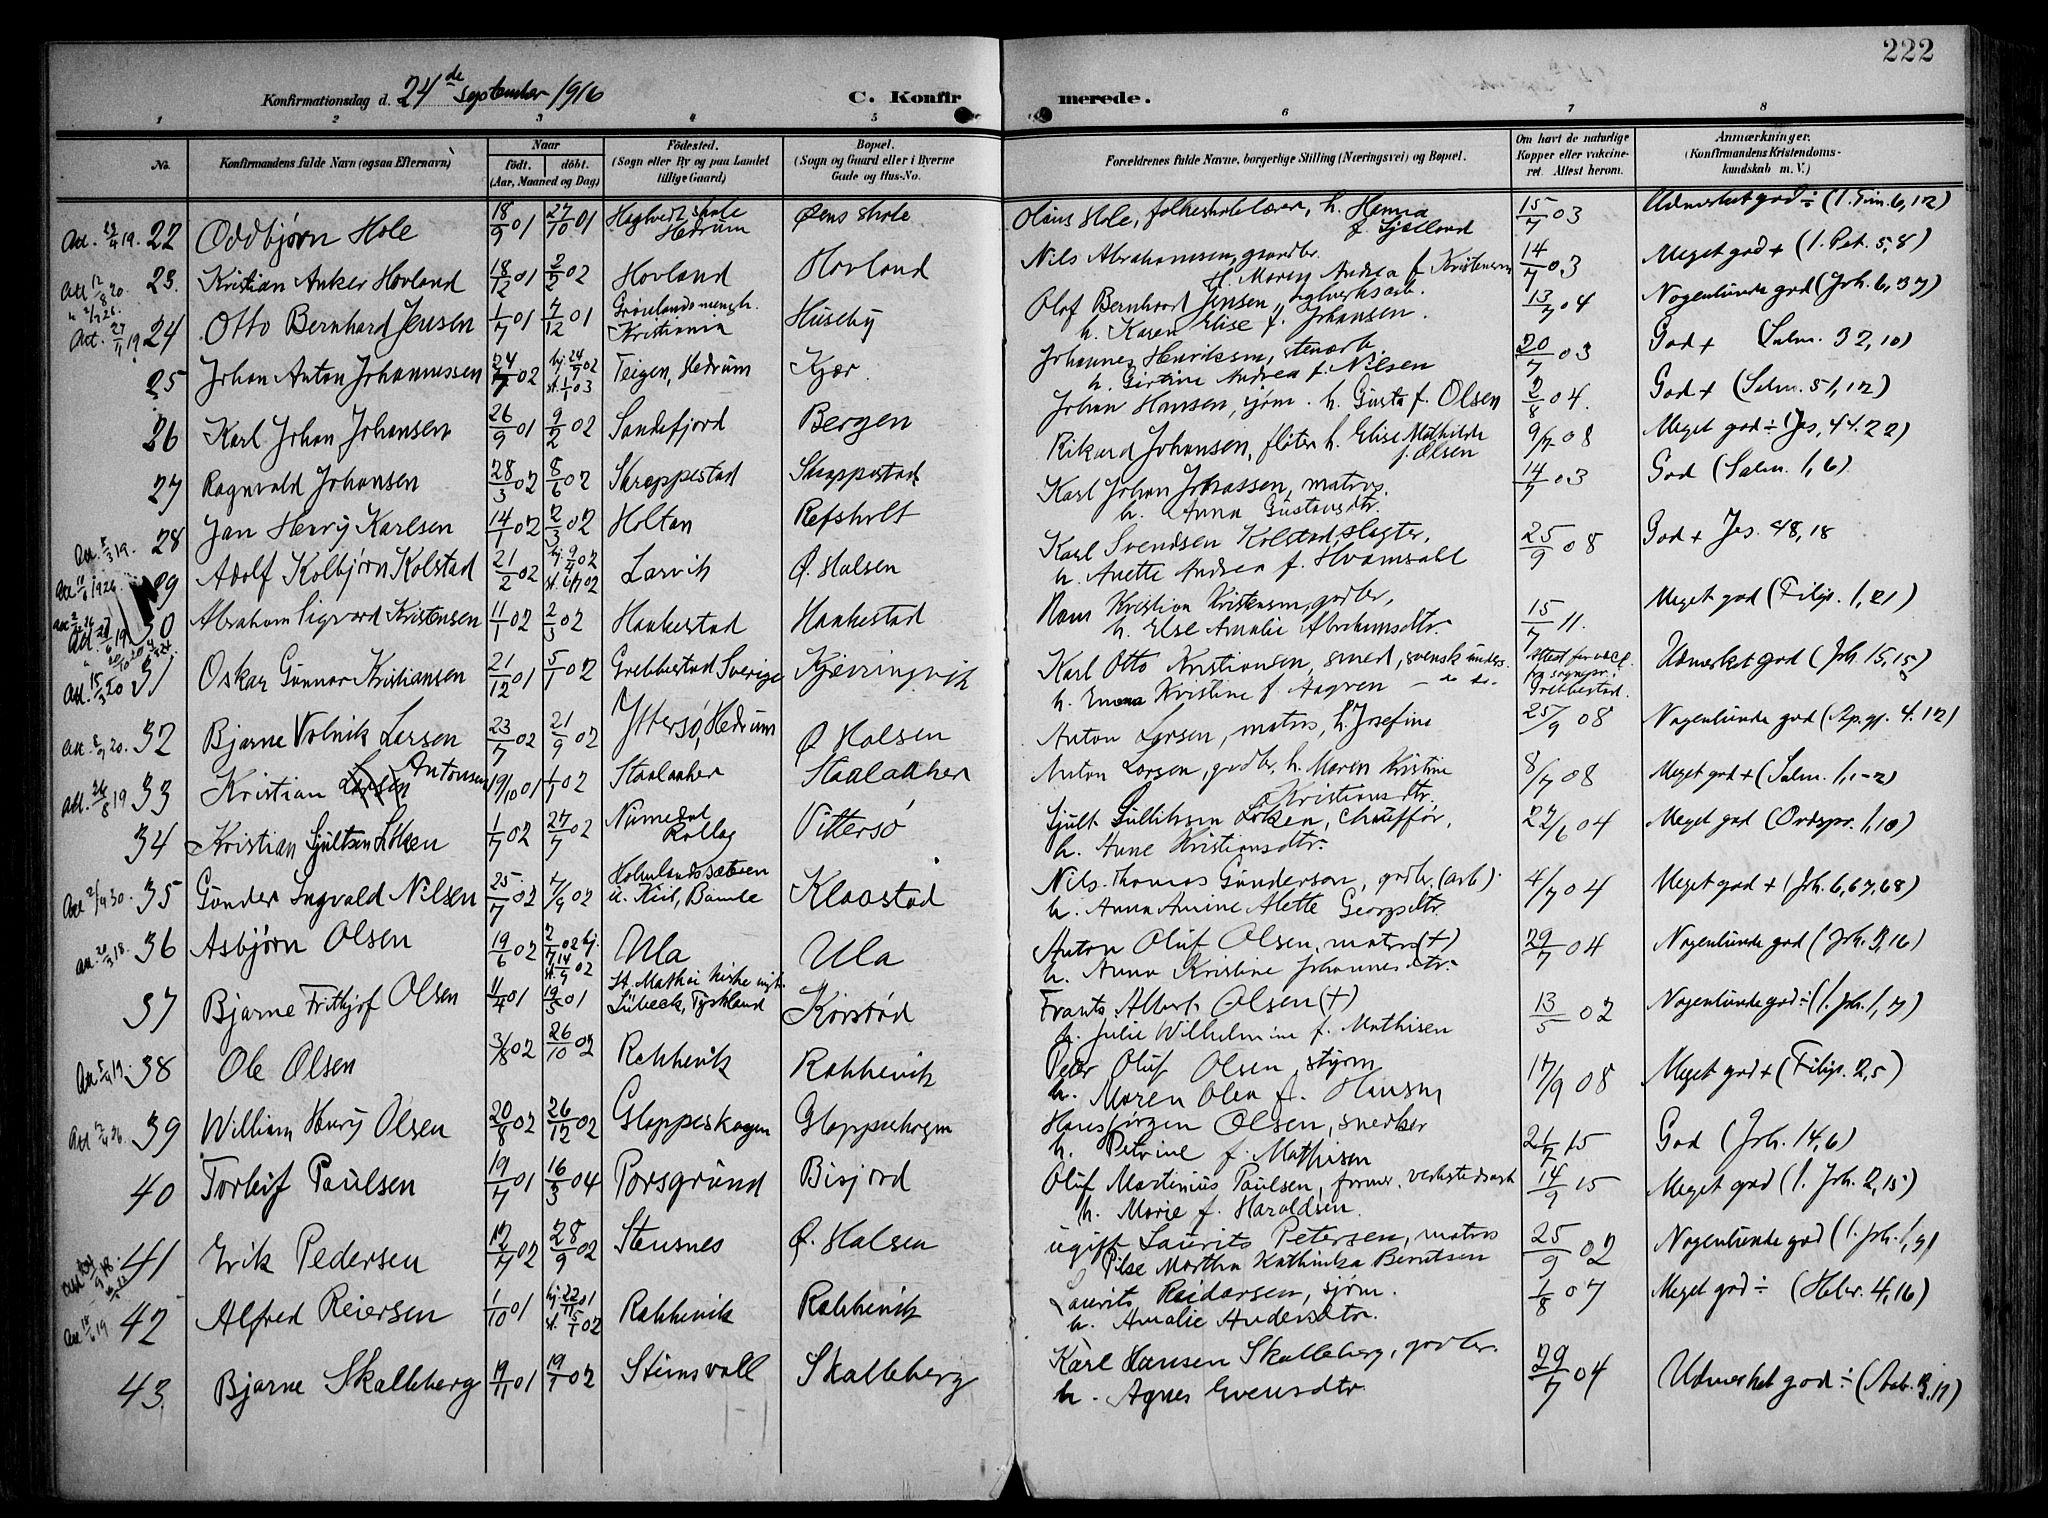 222
Konfirmationsdag d. 24de September 1916 C. Konfirmerede.
1 2 3 4 5 6 7 8
No. Konfirmandens fulde Navn (ogsaa Efternavn) Naar født. døbt. (Aar, Maaned og Dag) Fødested. (Sogn eller By og paa Landet tillige Gaard) Bopæl. (Sogn og Gaard eller i Byerne Gade og Hus-No. Forældrenes fulde Navne, borgerlige Stilling (Næringsvei) og Bopæl. Om havt de naturlige Kopper eller vakcineret. Attest herom. Anmærkninger. (Konfirmandens Kristendomskundskab m. V.)
22 Oddbjørn Hole 18/9 01 27/10 01 Hagtvedt skole Hedrum Øens skole Olaus Hole, folkeskolelærer, h. Hanna f. Gjelland 15/7 03 Udmerket god ÷ (1. Tim. 6, 12)
23. Kristian Anker Hovland 18/12 01 2/2 02 Hovland Hovland Nils Abrahamsen, gaardbr. h. Maren Andrea f. Kristensen 14/7 03 Meget god + (1. Pet. 5, 8)
24 Otto Bernhard Jensen 1/7 01 7/12 01 Grønlands mengh. Kristiania Huseby Olof Bernhard Jensen, h. Karen Elise f. Johansen. 13/7 04 Nogenlunde god (Joh. 6, 37)
25 Johan Anton Johannessen 24/7 02 hj. 24/7 02 st. 1/1 03 Teigen, Hedrum Kjær Johannes Henriksen, stenarb. h. Girtine Andrea f. Nilsen 20/7 03 God + (Salm. 32, 10)
26 Karl Johan Johansen 26/9 01 9/2 02 Sandefjord Bergen Johan Hansen, sjøm. h. Gusta f. Olsen 2/8 04. God + (Salm. 51, 12)
27 Ragnvald Johansen 28/3 02 8/6 02 Skræppestad Skræppestad Rikard Johansen, fløter h. Elise Mathilde f. Olsen 9/7 08 Meget god ÷ (Jes. 44. 22)
28 Jan Henry Karlsen 14/1 02 2/3 02 Holtan Refsholt Karl Johan Johassen, matros. h. Anna Gustavsdtr. 14/7 03 God (Salm. 1, 6)
29 Adolf Kolbjørn Kolstad 21/2 02 Larvik Ø. Halsen Karl Svendsen Kolstad, slagter, h. Anette Andrea f. Hvamsahl 25/9 08 God + Jes. 48, 18
30 Abraham Sigvard Kristensen 11/1 02 2/3 02 Haakestad Haakestad Hans Kristian Kristensen, gadbr, h. Else Amalie Abrahamsdtr. 15/7 11. Meget god (Filip. 1, 21)
31 Oskar Gunnar Kristiansen 21/12 01 5/1 02 Grebbestad Sverige Kjerringvik Karl Otto Kristiansen, smed, svensk unders. h. Emma Kristine f. Aagren — do do. Attest for vacc. fra sognpr. i Grebbestad. Udmerket god (Joh. 15, 15)
32 Bjarne Volrik Larsen 23/7 02 21/9 02 Yttersø, Hedrum Ø Halsen Anton Larsen, matros, h. Josefine 25/9 08 Nogenlunde god (Ap. gj. 4. 12)
33 Kristian Larsen Antonsen 19/10 01 1/1 02 Staalaaker Staalaaker Anton Larsen, gadbr, h. Maren Kristine Kristiansdtr. 8/7 08 Meget god + (Salm. 1, 1-2)
34 Kristian Sjultsen Løken 1/7 02 27/7 02 Numedal Rollag Vittersø Sjult Gulliksen Løken, chauffør, h. Anne Kristiansdtr. 22/6 04 Meget god (Ordspr. 1, 10)
35 Gunder Ingvald Nilsen 25/7 02 7/9 02 Bamle Klaastad Nils Thomas Gunderson, gadbr, (arb). h. Anna Amine Alette Georgsdtr. 4/7 04 Meget god + (Joh. 6, 67, 68)
36 Asbjørn Olsen 19/6 02 2/7 02 hj. st. 14/9 02 Ula Ula Anton Oluf Olsen, matros (+) h. Anna Kristine Johannesdtr. 29/7 04 Nogenlunde god (Joh. 3, 16)
37 Bjarne Frithjof Olsen 11/4 01 19/5 01 St. Mathæi kirke Lübeck, Tyskland Korstød Frants Albert Olsen (+) h. Julie Wilhelmine f. Mathisen 13/5 02 Nogenlunde god ÷ (1. Joh. 1, 7)
38 Ole Olsen 3/8 02 26/10 02 Rakkevik Rakkevik Peter Oluf Olsen, styrm. h. Maren Olea f. Hansen 17/9 08 Meget god + (Filip. 2, 5)
39 William Henry Olsen 20/8 02 26/12 02 Gloppeskogen Gloppeskogen Hans Jørgen Olsen, snedker h. Petrine f. Mathisen 21/7 15 God (Joh. 14, 6)
40 Torleif Paulsen 19/7 01 16/3 04 Porsgrund Bisjord Oluf Martinius Paulsen, former, verkstedsarb h. Marie f. Haraldsen. 14/9 15 Meget god (1. Joh. 2, 15)
41 Erik Pedersen 28/9 02 Stusnes Ø. Halsen ugift Laurits Petersen, matros Pike Martha Kathinka Berntsen 25/9 02 Nogenlunde god (1. Joh. 1, 9)
42 Alfred Reiersen 1/10 01 Rakkevik Rakkevik Laurits Reidarsen, sjøm. h. Amalie Andersdtr. 1/8 07 Meget god ÷ (Hebr. 4, 16)
43 Bjarne Skalleberg 19/11 01 19/1 02 Stinsvoll Skalleberg Karl Hansen Skalleberg, gadbr. h. Agnes Evensdtr. 29/7 04 Udmerket god ÷ (Aab. 3. 11)